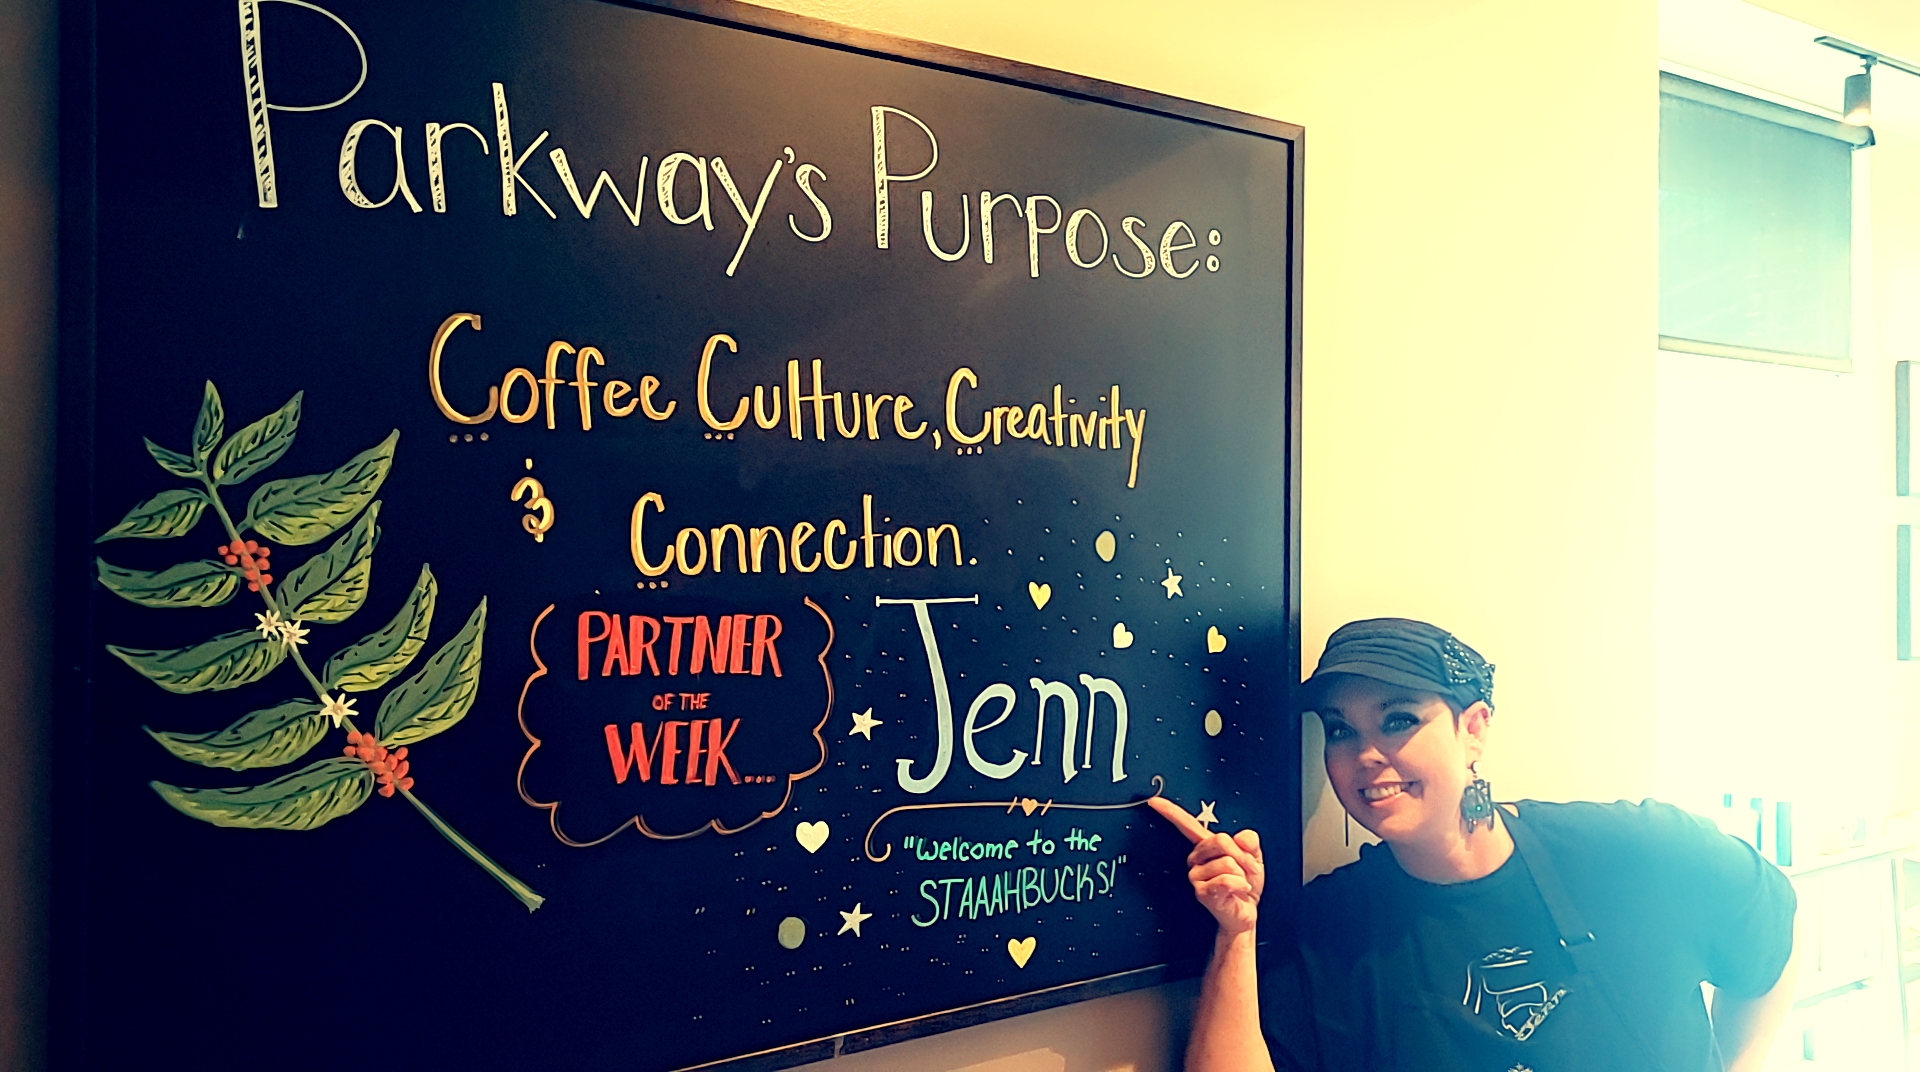 Parkway's Purpose:
Coffee Culture, Creativity
& Connection.
PARTNER
OF THE
WEEK....
Jenn
"Welcome to the
STAAAHBUCKS!"
Jenn